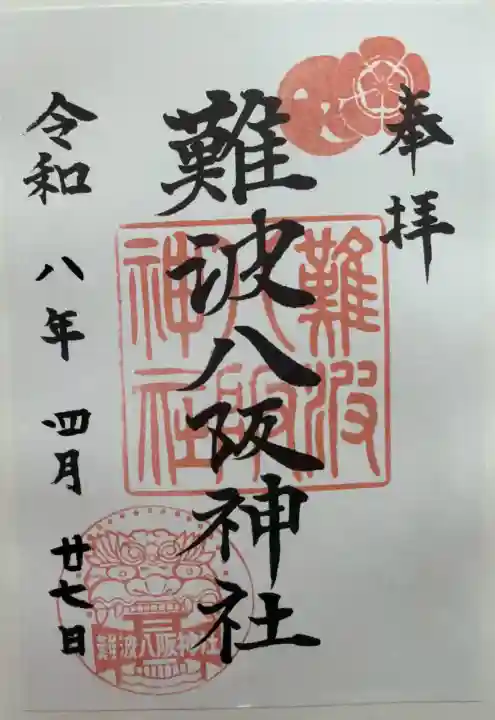 奉拝
難波八阪神社
難波
八阪
神社
令和 八年 四月 廿七日
難波八阪神社